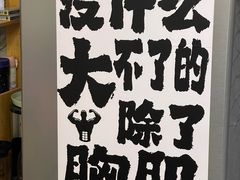 没什么
大不了的
除了
胸肌